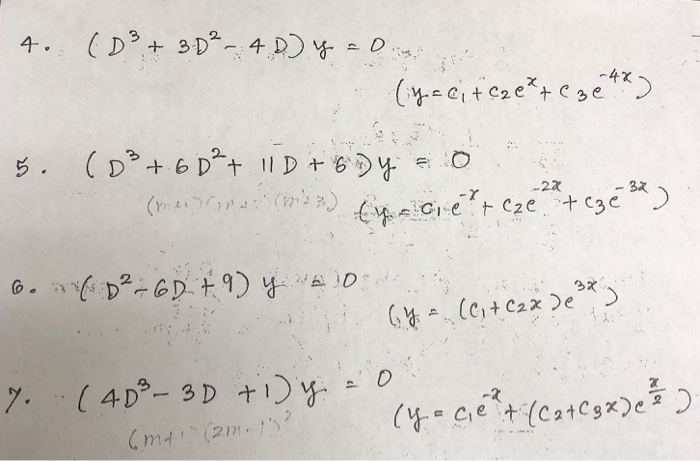 4. (D³ + 3D² - 4D)y = 0
(y = c₁ + c₂eˣ + c₃e⁻⁴ˣ)
5. (D³ + 6D² + 11D + 6)y = 0
(y = c₁e⁻ˣ + c₂e⁻²ˣ + c₃e⁻³ˣ)
6. (D² - 6D + 9)y = 0
(y = (c₁ + c₂x)e³ˣ)
7. (4D³ - 3D + 1)y = 0
(m+1 (2m-1)²
(y = c₁e⁻ˣ + (c₂ + c₃x)e^(x/2))